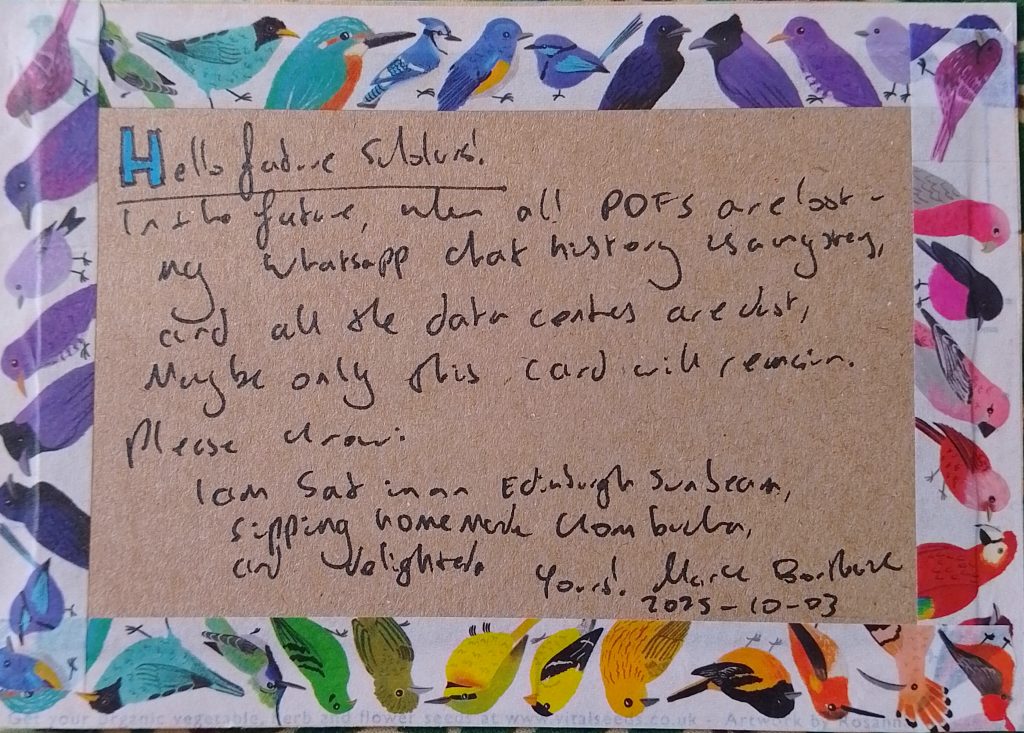 Hello future Scholars!
In the future, when all PDFs are lost -
my Whatsapp chat history is a mystery,
and all the data centres are dust,
Maybe only this card will remain.
Please know:
I am Sat in an Edinburgh Sunbeam,
Sipping homemade kombucha,
and delighted.
Yours! Mark
2025-10-03
Get your organic vegetable, herb and flower seeds at www.vitalseeds.co.uk - Artwork by